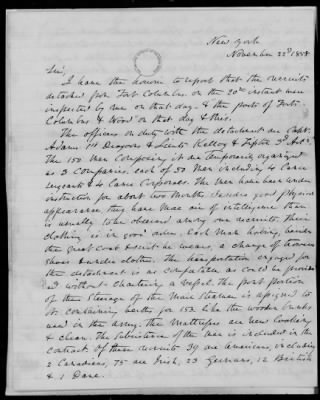 New York
November 22d 1858
Sir,
I have the honor to report that the recruits
detached from Fort Columbus on the 20th instant were
inspected by me on that day & the posts of Forts
Columbus & Wood on that day & this.
The officers on duty with the detachment are Capt.
Adams 1st Dragoons & Lieuts Kellogg & 3d Arty.
The 150 men composing it are temporarily organized
as 3 Companies, each of 50 men including 4 Lance
Sergeants & 4 Lance Corporals. The men have been under
instruction for about two months. Besides good physical
appearance they have more of intelligence than
is usually to be observed among our recruits. Their
clothing is in good order. Each man having, besides
the great coat & suit he wears, a change of trousers
shoes & under clothe. The transportation engaged for
the detachment is as comfortable as could be provid-
ed without chartering a vessel. The front portion
of the steerage of the Mail Steamer is assigned to
it containing berths for 153 like the wooden bunks
used in the army. The mattresses are new looking
& clean. The subsistence of the men is included in the
contract. Of these recruits 39 are Americans, including
2 Canadians, 75 are Irish, 23 Germans, 12 British
& 1 Dane.